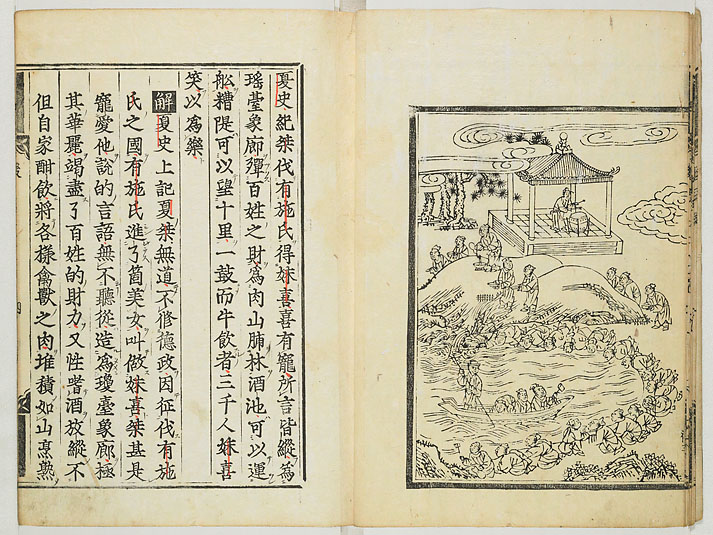 夏史紀桀伐有施氏得妺喜喜有寵所言皆縱爲
瑤臺象廊殫百姓之財爲肉山脯林酒池可以運
舩糟隄可以望十里一鼓而牛飲者三千人妺喜
笑以爲樂
解夏史上記夏桀無道不修德政因征伐有施
氏之國有施氏進了箇美女叫做妺喜桀甚是
寵愛他說的言語無不聽從造爲瓊臺象廊極
其華麗竭盡了百姓的財力又性嗜酒放縱不
但自家酣飲將各樣禽獸之肉堆積如山烹熟